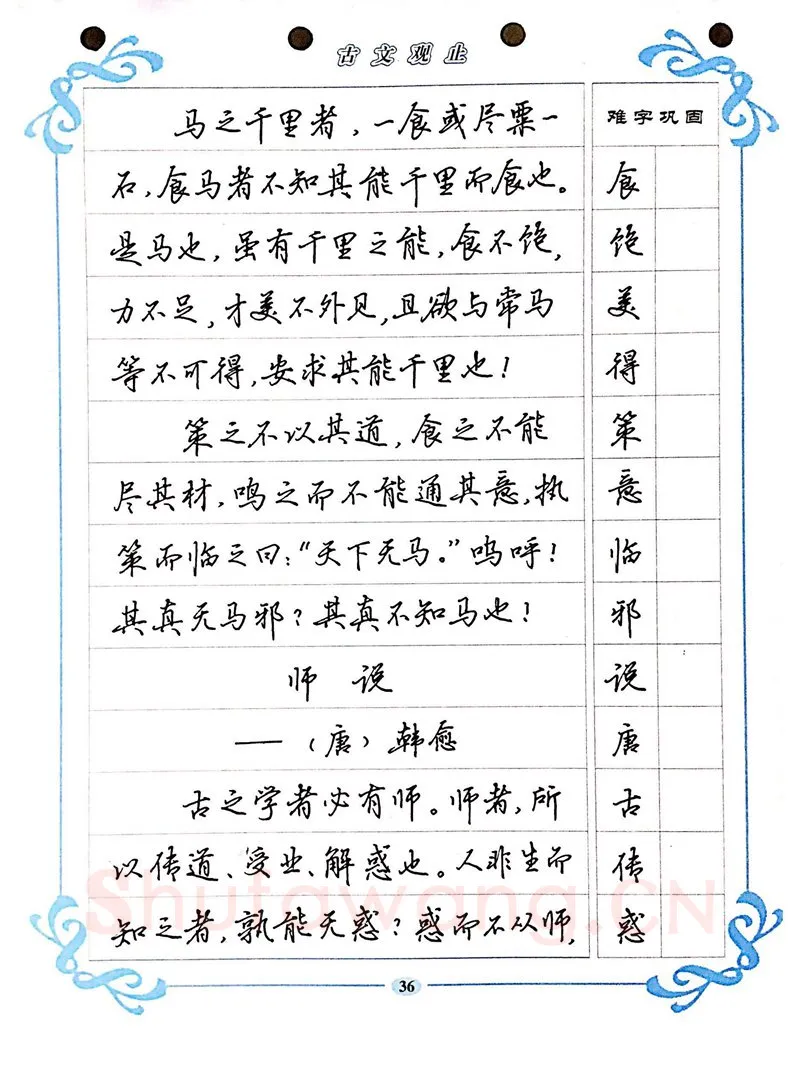 古文观止
马之千里者，一食或尽粟一
石，食马者不知其能千里而食也。
是马也，虽有千里之能，食不饱，
力不足，才美不外见，且欲与常马
等不可得，安求其能千里也！
策之不以其道，食之不能
尽其材，鸣之而不能通其意，执
策而临之曰：“天下无马。”呜呼！
其真无马邪？其真不知马也！
师 说
——（唐）韩愈
古之学者必有师。师者，所
以传道、受业、解惑也。人非生而
知之者，孰能无惑？惑而不从师，
难字巩固
食
饱
美
得
策
意
临
邪
说
唐
古
传
惑
Shufawang.CN
36